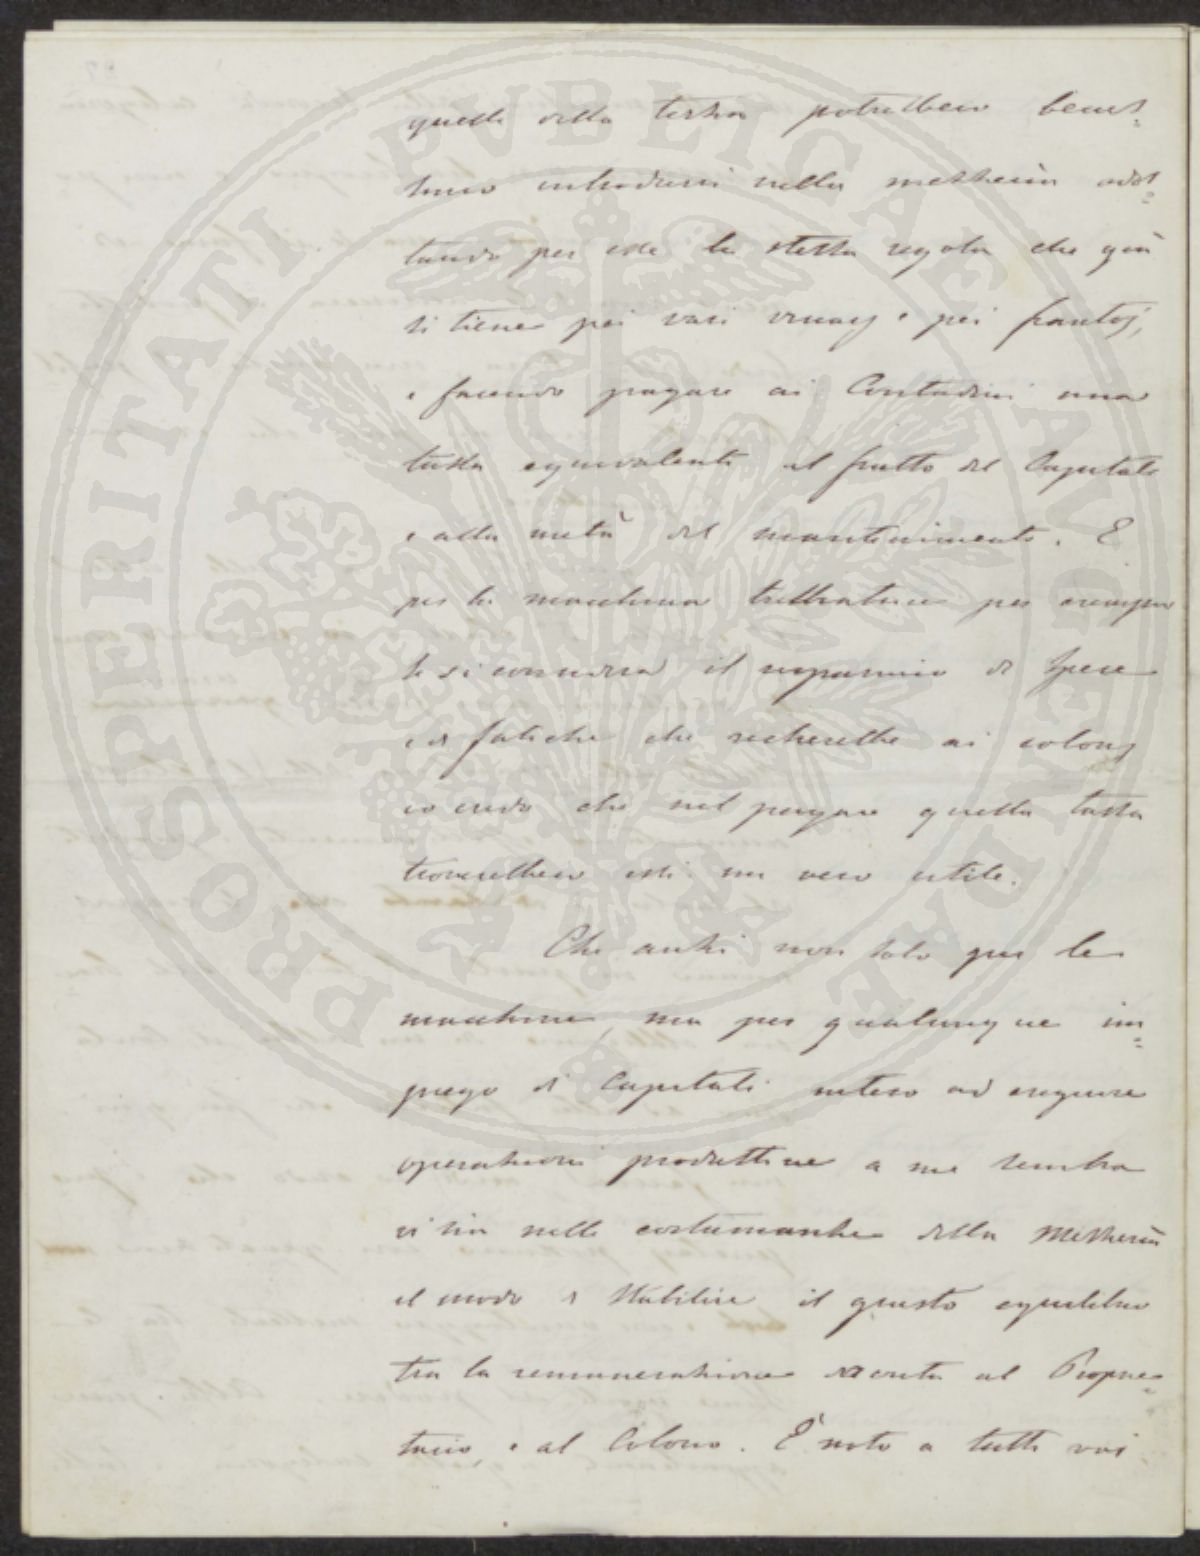 quelle della terza potrebbero benis=
simo introdursi nella mezzeria adot=
tando per esse la stessa regola che già
si tiene pei vasi vinarj e pei frantoj,
e facendo pagare ai Contadini una
tassa equivalente al frutto del Capitale
e alla metà del mantenimento. E
per la macchina trebbiatrice per esempio
se si considera il risparmio di spese
e di fatiche che recherebbe ai coloni
io credo che nel pagare questa tassa
troverebbero essi un vero utile.
Che anzi non solo per le
macchine, ma per qualunque im=
piego di Capitali inteso ad eseguire
operazioni produttive a me sembra
vi sia nelle costumanze della Mezzeria
il modo di stabilire il giusto equilibrio
tra la remunerazione dovuta al Proprie=
tario, e al Colono. È noto a tutti voi
PROSPERITATI PUBLICAE AUGENDAE